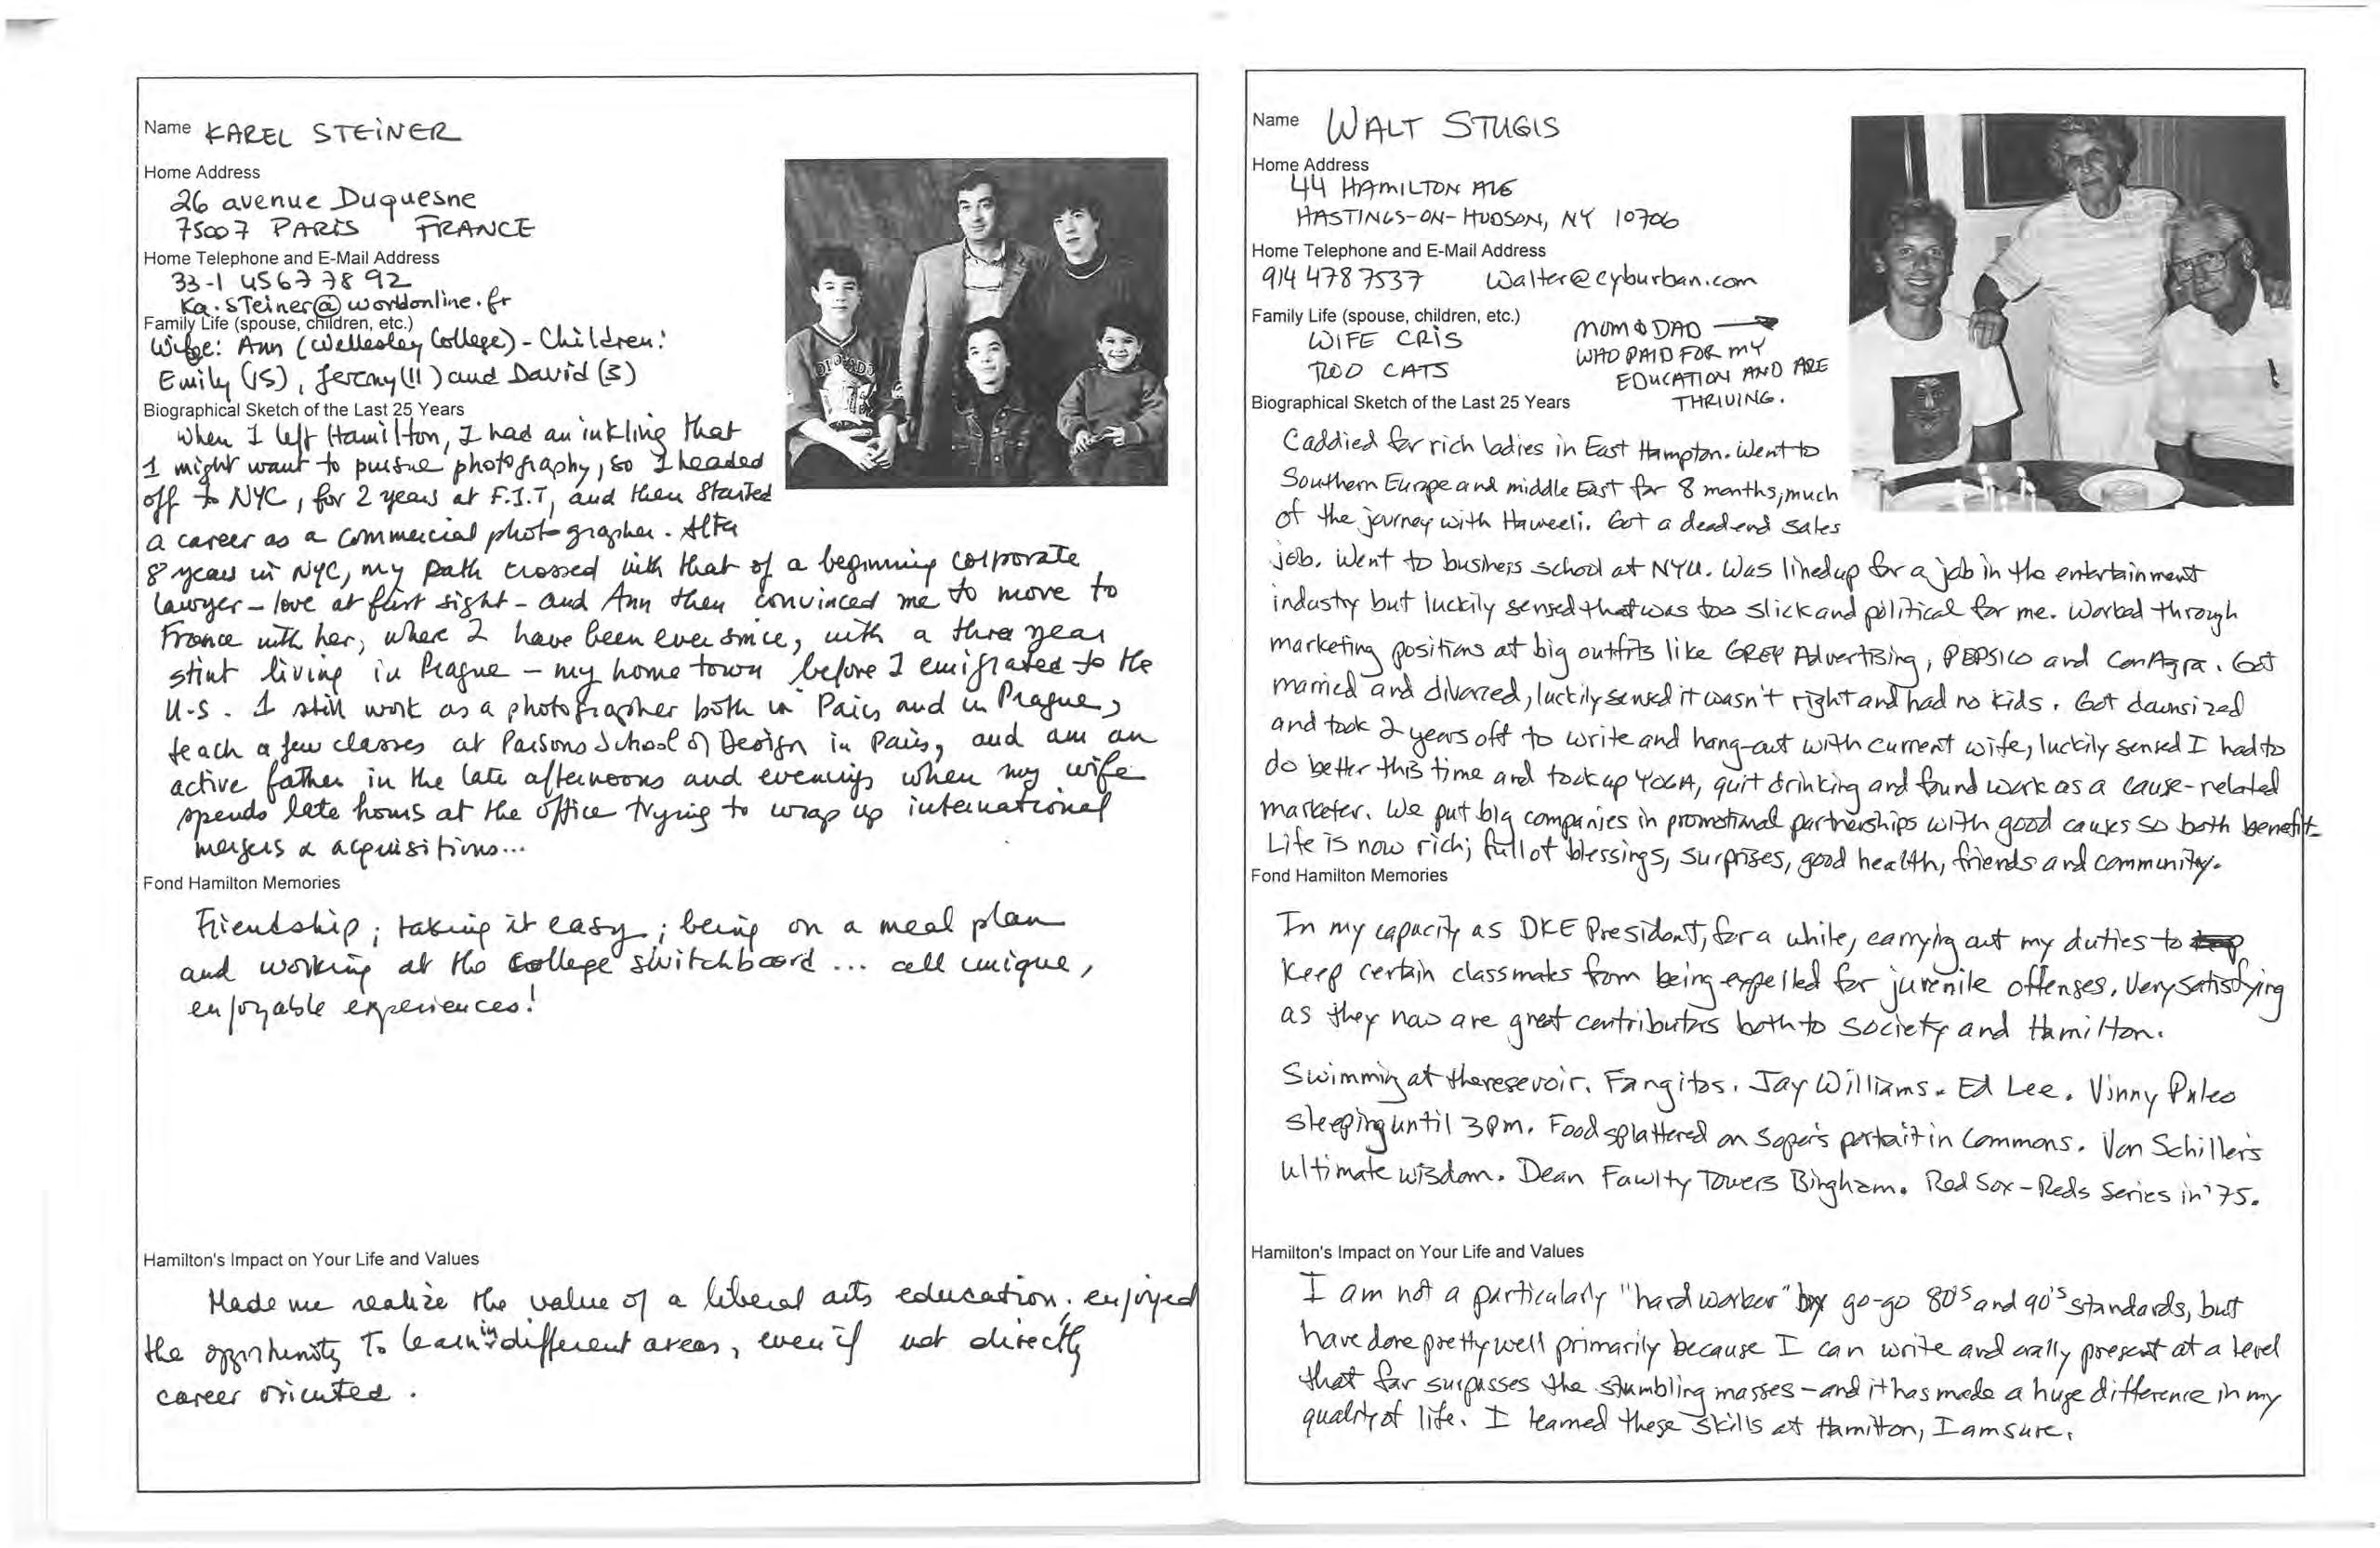 Name KAREL STEINER
Home Address
26 avenue Duquesne
75007 PARIS FRANCE
Home Telephone and E-Mail Address
33-1 45677892
Ka.STeiner@worldonline.fr
Family Life (spouse, children, etc.)
Wife: Ann (Wellesley College) - Children:
Emily (15), Jeremy (11) and David (3)
Biographical Sketch of the Last 25 Years
When I left Hamilton, I had an inkling that
I might want to pursue photography, so I headed
off to NYC, for 2 years at F.I.T, and then started
a career as a commercial photographer. After
8 years in NYC, my path crossed with that of a beginning corporate
lawyer - love at first sight - and Ann then convinced me to move to
France with her, where I have been ever since, with a three year
stint living in Prague - my home town before I emigrated to the
U.S. I still work as a photographer both in Paris and in Prague,
teach a few classes at Parsons School of Design in Paris, and am an
active father in the late afternoons and evenings when my wife
spends late hours at the office trying to wrap up international
mergers & acquisitions...
Fond Hamilton Memories
Friendship; taking it easy; being on a meal plan
and working at the College switchboard ... all unique,
enjoyable experiences!
Hamilton's Impact on Your Life and Values
Made me realize the value of a liberal arts education; enjoyed
the opportunity to learn in different areas, even if not directly
career oriented.
Name WALT STUGIS
Home Address
44 HAMILTON AVE
HASTINGS-ON-HUDSON, NY 10706
Home Telephone and E-Mail Address
914 478 7537 Walter@cyburban.com
Family Life (spouse, children, etc.)
WIFE CRIS
TWO CATS
MUM & DAD
WHO PAID FOR MY
EDUCATION AND ARE
THRIVING.
Biographical Sketch of the Last 25 Years
Caddied for rich ladies in East Hampton. Went to
Southern Europe and middle East for 8 months, much
of the journey with Haweeli. Got a deadend sales
job. Went to business school at NYU. Was lined up for a job in the entertainment
industry but luckily sensed that was too slick and political for me. Worked through
marketing positions at big outfits like GREY Advertising, PEPSICO and ConAgra. Got
married and divorced, luckily sensed it wasn't right and had no kids. Got downsized
and took 2 years off to write and hang-out with current wife, luckily sensed I had to
do better this time and took up YOGA, quit drinking and found work as a cause-related
marketer. We put big companies in promotional partnerships with good causes so both benefit.
Life is now rich; full of blessings, surprises, good health, friends and community.
Fond Hamilton Memories
In my capacity as DKE President, for a while, carrying out my duties to
keep certain classmates from being expelled for juvenile offenses. Very satisfying
as they now are great contributors both to society and Hamilton.
Swimming at the resevoir. Fangitos. Jay Williams. Ed Lee. Vinny Puleo
sleeping until 3pm. Food splattered on Soper's portait in Commons. Von Schiller's
ultimate wisdom. Dean Fawlty Towers Bingham. Red Sox-Reds Series in '75.
Hamilton's Impact on Your Life and Values
I am not a particularly "hard worker" by go-go 80's and 90's standards, but
have done pretty well primarily because I can write and orally present at a level
that far surpasses the stumbling masses - and it has made a huge difference in my
quality of life. I learned these skills at Hamilton, I am sure.